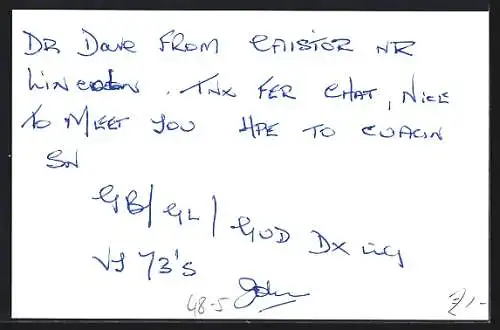 DR Dave FROM CAISTOR NR
Lincoln. TNX FER CHAT, NICE
TO MEET YOU HPE TO CUAGN
SN
GB/GL/GUD DX ing
VY 73's
John
48-5
2/-